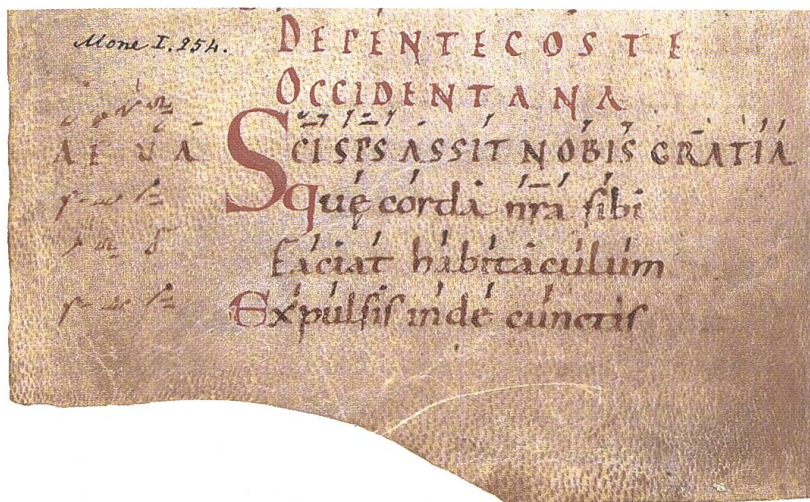 Mone I. 254.
DE PENTECOSTE
OCCIDENTANA
AEUA SCI SPS ASSIT NOBIS GRATIA
quę corda nr̄a sibi
Faciat habitaculum
Expulsis inde cunctis